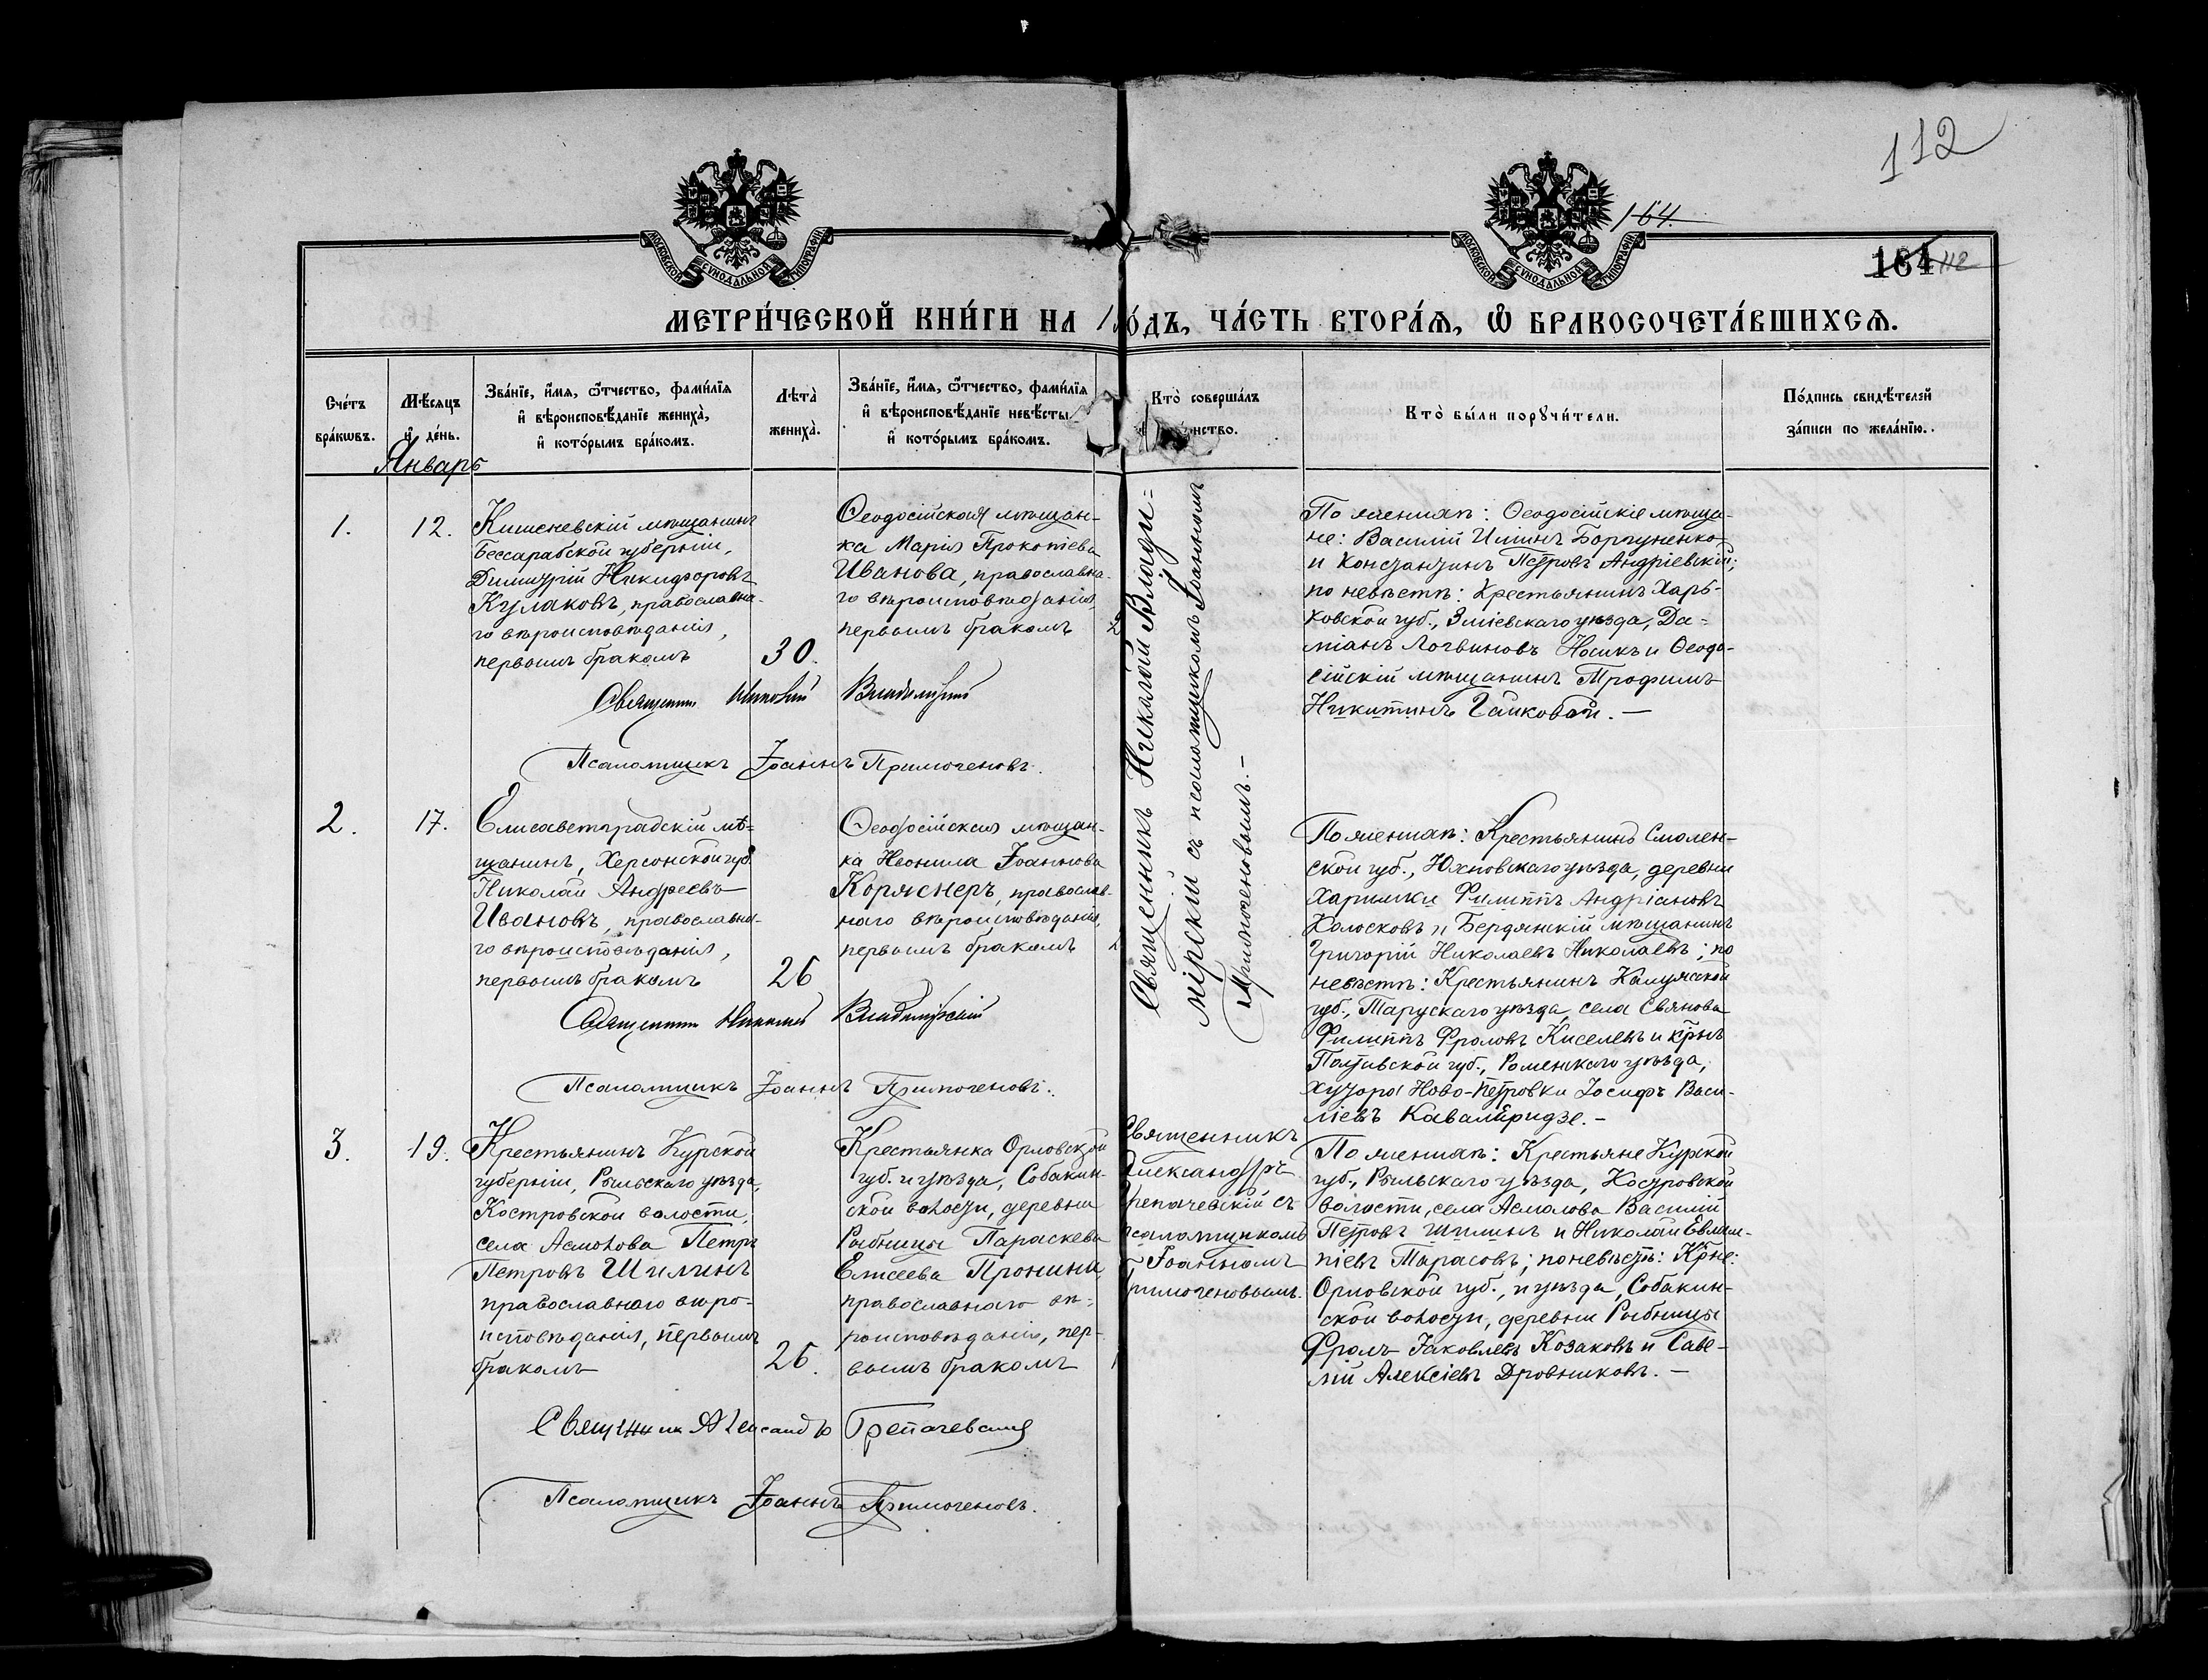 112
164.
164 112
МОСКОВСКОЙ СѴНОДАЛЬНОЙ ТИПОГРАФІИ
МОСКОВСКОЙ СѴНОДАЛЬНОЙ ТИПОГРАФІИ
МЕТРИ́ЧЕСКОЙ КНИ́ГИ НА 1 ГО́ДЪ, ЧА́СТЬ ВТОРА́Я, Ѽ БРАКОСОЧЕТА́ВШИХСЯ.
Сче́тъ
бра́кѡвъ.
Мѣ́сяцъ
и҆ де́нь.
Зва́нїе, и҆́мя, ѻ҆́тчество, фами́лїя
и҆ вѣроисповѣ́данїе жениха̀,
и҆ кото́рымъ бра́комъ.
Лѣта̀
жениха̀.
Зва́нїе, и҆́мя, ѻ҆́тчество, фами́лїя
и҆ вѣроисповѣ́данїе невѣ́сты
и҆ кото́рымъ бра́комъ.
Кто̀ соверша́лъ
нство.
Кто̀ бы́ли порꙋчи́тели.
По́дпись свидѣ́телей
за́писи по жела́нїю.
Январь
1.
12.
Кишеневскій мѣщанинъ
Бессарабской губерніи,
Димитрій Никифоровъ
Кулаковъ, православна-
го вѣроисповѣданія,
первымъ бракомъ
30.
Ѳеодосійская мѣщан-
ка Марія Прокопіева
Иванова, православна-
го вѣроисповѣданія,
первымъ бракомъ
2
Священникъ Николай Влади=
мірскій съ псаломщикомъ Іоанномъ
Примоченовымъ.-
По женихѣ: Ѳеодосійскіе мѣща-
не: Василій Ильинъ
и Константинъ Петровъ Андріевскій;
по невѣстѣ: Крестьянинъ Харь-
ковской губ., Зміевскаго уѣзда, Да=
міанъ Логвиновъ Носикъ и Ѳеодо-
сійскій мѣщанинъ Трофимъ
Никитинъ Гайковой. -
Священникъ Николай Владимірскій
Псаломщикъ Іоаннъ Примоченовъ.
2.
17.
Елисаветградскій мѣ=
щанинъ, Херсонской губ.
Николай Андреевъ
Ивановъ, православна-
го вѣроисповѣданія,
первымъ бракомъ
26
Ѳеодосійская мѣщан-
ка Неонила Іоаннова
Коряснеръ, православ-
наго вѣроисповѣданія,
первымъ бракомъ
2
По женихѣ: Крестьянинъ Смолен-
ской губ., Юхновскаго уѣзда, деревни
Харишки Филиппъ Андріановъ
Холосковъ и Бердянскій мѣщанинъ
Григорій Николаевъ Николаевъ; по
невѣстѣ: Крестьянинъ Калужской
губ., Тарускаго уѣзда, села Свянова
Филиппъ Фроловъ Киселевъ и кр̃нъ
Полтавской губ., Роменскаго уѣзда,
хутора Ново-Петровки Іосифъ Васи-
ліевъ Кавалеридзе.-
Священникъ Николай Владимірскій
Псаломщикъ Іоаннъ Примоченовъ.
3.
19.
Крестьянинъ Курской
губерніи, Рыльскаго уѣзда,
Костровской волости,
села Асмолова Петръ
Петровъ Шилинъ
православнаго вѣро-
исповѣданія, первымъ
бракомъ
26.
Крестьянка Орловской
губ. и уѣзда, Собакин-
ской волости, деревни
Рыбницы Параскева
Елисеева Пронина,
православнаго вѣ-
роисповѣданія, пер-
вымъ бракомъ
Священникъ
Александръ
Трепачевскій съ
псаломщикомъ
Іоанномъ
Примоченовымъ.
По женихѣ: Крестьяне Курской
губ., Рыльскаго уѣзда, Костровской
волости, села Асмолова Василій
Петровъ Шилинъ и Николай Евлам-
піевъ Тарасовъ; по невѣстѣ: Кр̃не:
Орловской губ., и уѣзда, Собакин-
ской волости, деревни Рыбницы
Фролъ Іаковлевъ Козаковъ и Саве-
лій Алексіевъ Дровниковъ. -
Священник Александр Трепачевский
Псаломщикъ Іоаннъ Примоченовъ.